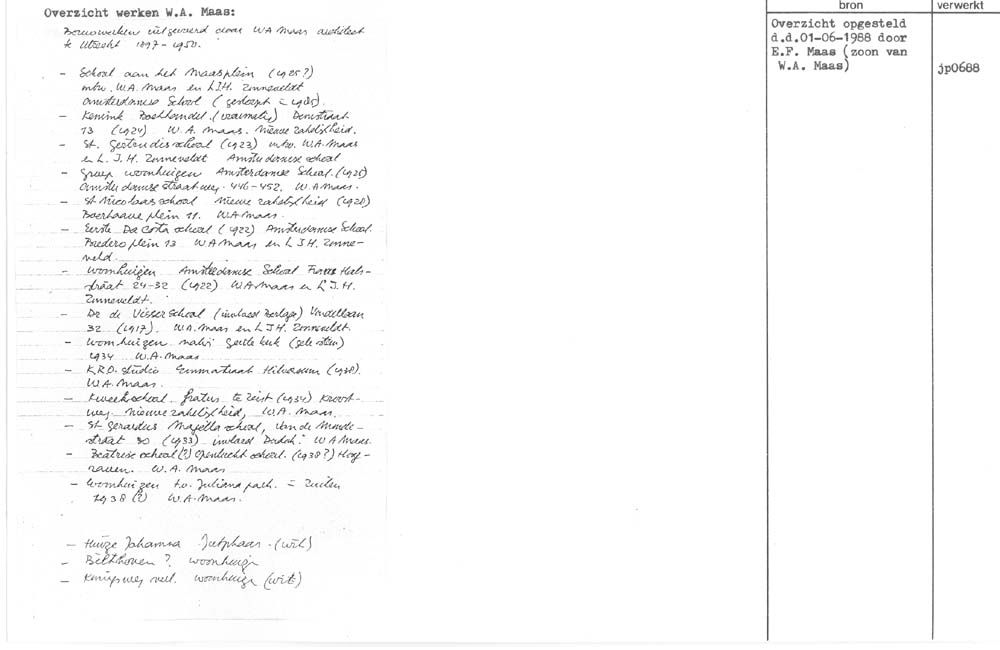 Overzicht werken W.A. Maas:
Bouwwerken uitgevoerd door WA Maas architect
te Utrecht 1897-1950.
- School aan het Maasplein (1925?)
mtw. W.A. Maas en L.J.H. Zinneveldt
Amsterdamse School (gesloopt = 1985).
- Kemink Boekhandel. (verbouwing) Domstraat
13 (1924) W.A. Maas. Nieuwe zakelijkheid.
- St. Geertrudisschool (1923) mtw. W.A. Maas
en L.J.H. Zinneveldt Amsterdamse school
- Groep woonhuizen Amsterdamse School. (1925)
Amsterdamse straatweg. 446-452. W.A Maas.
- St Nicolaasschool Nieuwe zakelijkheid (1928)
Boerhaave plein 11. W.A Maas.
- Eerste Da Costa school (1922) Amsterdamse School.
Brederoplein 13 W A Maas en L J.H. Zinne-
veld.
- Woonhuizen Amsterdamse School Frans Hals-
straat 24-32 (1922) W.A Maas en L J.H.
Zinneveldt.
- Dr de Visserschool (invloed Berlage) Vondellaan
32 (1917). W.A. Maas en L J H. Zinneveldt.
- Woonhuizen nabij kerk (gele steen)
1934 W.A. Maas
- K.R.O. studio Emmastraat Hilversum (1938).
W.A. Maas.
- Kweekschool fraters te Zeist (1934)
weg. Nieuwe zakelijkheid, W.A. Maas.
- St Gerardus Majella school, van de
straat 30 (1933) invloed Dudok. W A Maas.
- Beatrixschool (?) Openlucht school. (1938?) Hoog-
raven. W.A. Maas
- Woonhuizen t.o. Julianapark. = Zuilen
1938 (?) W.A. Maas.
- Huize Johanna Jutphaas. (wit)
- Bilthoven? woonhuizen
- woonhuizen (wit)
bron
Overzicht opgesteld
d.d.01-06-1988 door
E.F. Maas (zoon van
W.A. Maas)
verwerkt
jp0688